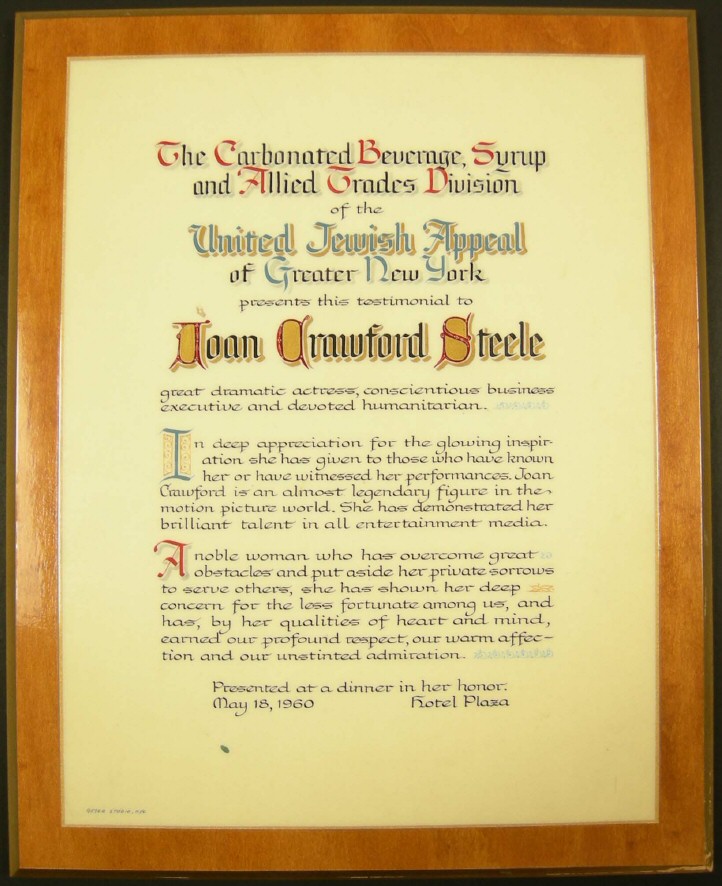 The Carbonated Beverage, Syrup
and Allied Trades Division
of the
United Jewish Appeal
of Greater New York
presents this testimonial to
Joan Crawford Steele
great dramatic actress, conscientious business
executive and devoted humanitarian.
In deep appreciation for the glowing inspir-
ation she has given to those who have known
her or have witnessed her performances. Joan
Crawford is an almost legendary figure in the
motion picture world. She has demonstrated her
brilliant talent in all entertainment media.
A noble woman who has overcome great
obstacles and put aside her private sorrows
to serve others, she has shown her deep
concern for the less fortunate among us, and
has, by her qualities of heart and mind,
earned our profound respect, our warm affec-
tion and our unstinted admiration.
Presented at a dinner in her honor.
May 18, 1960 Hotel Plaza